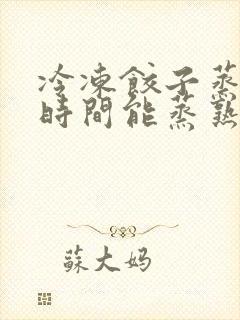 冷凍餃子蒸
時間能蒸熟
蘇大妈